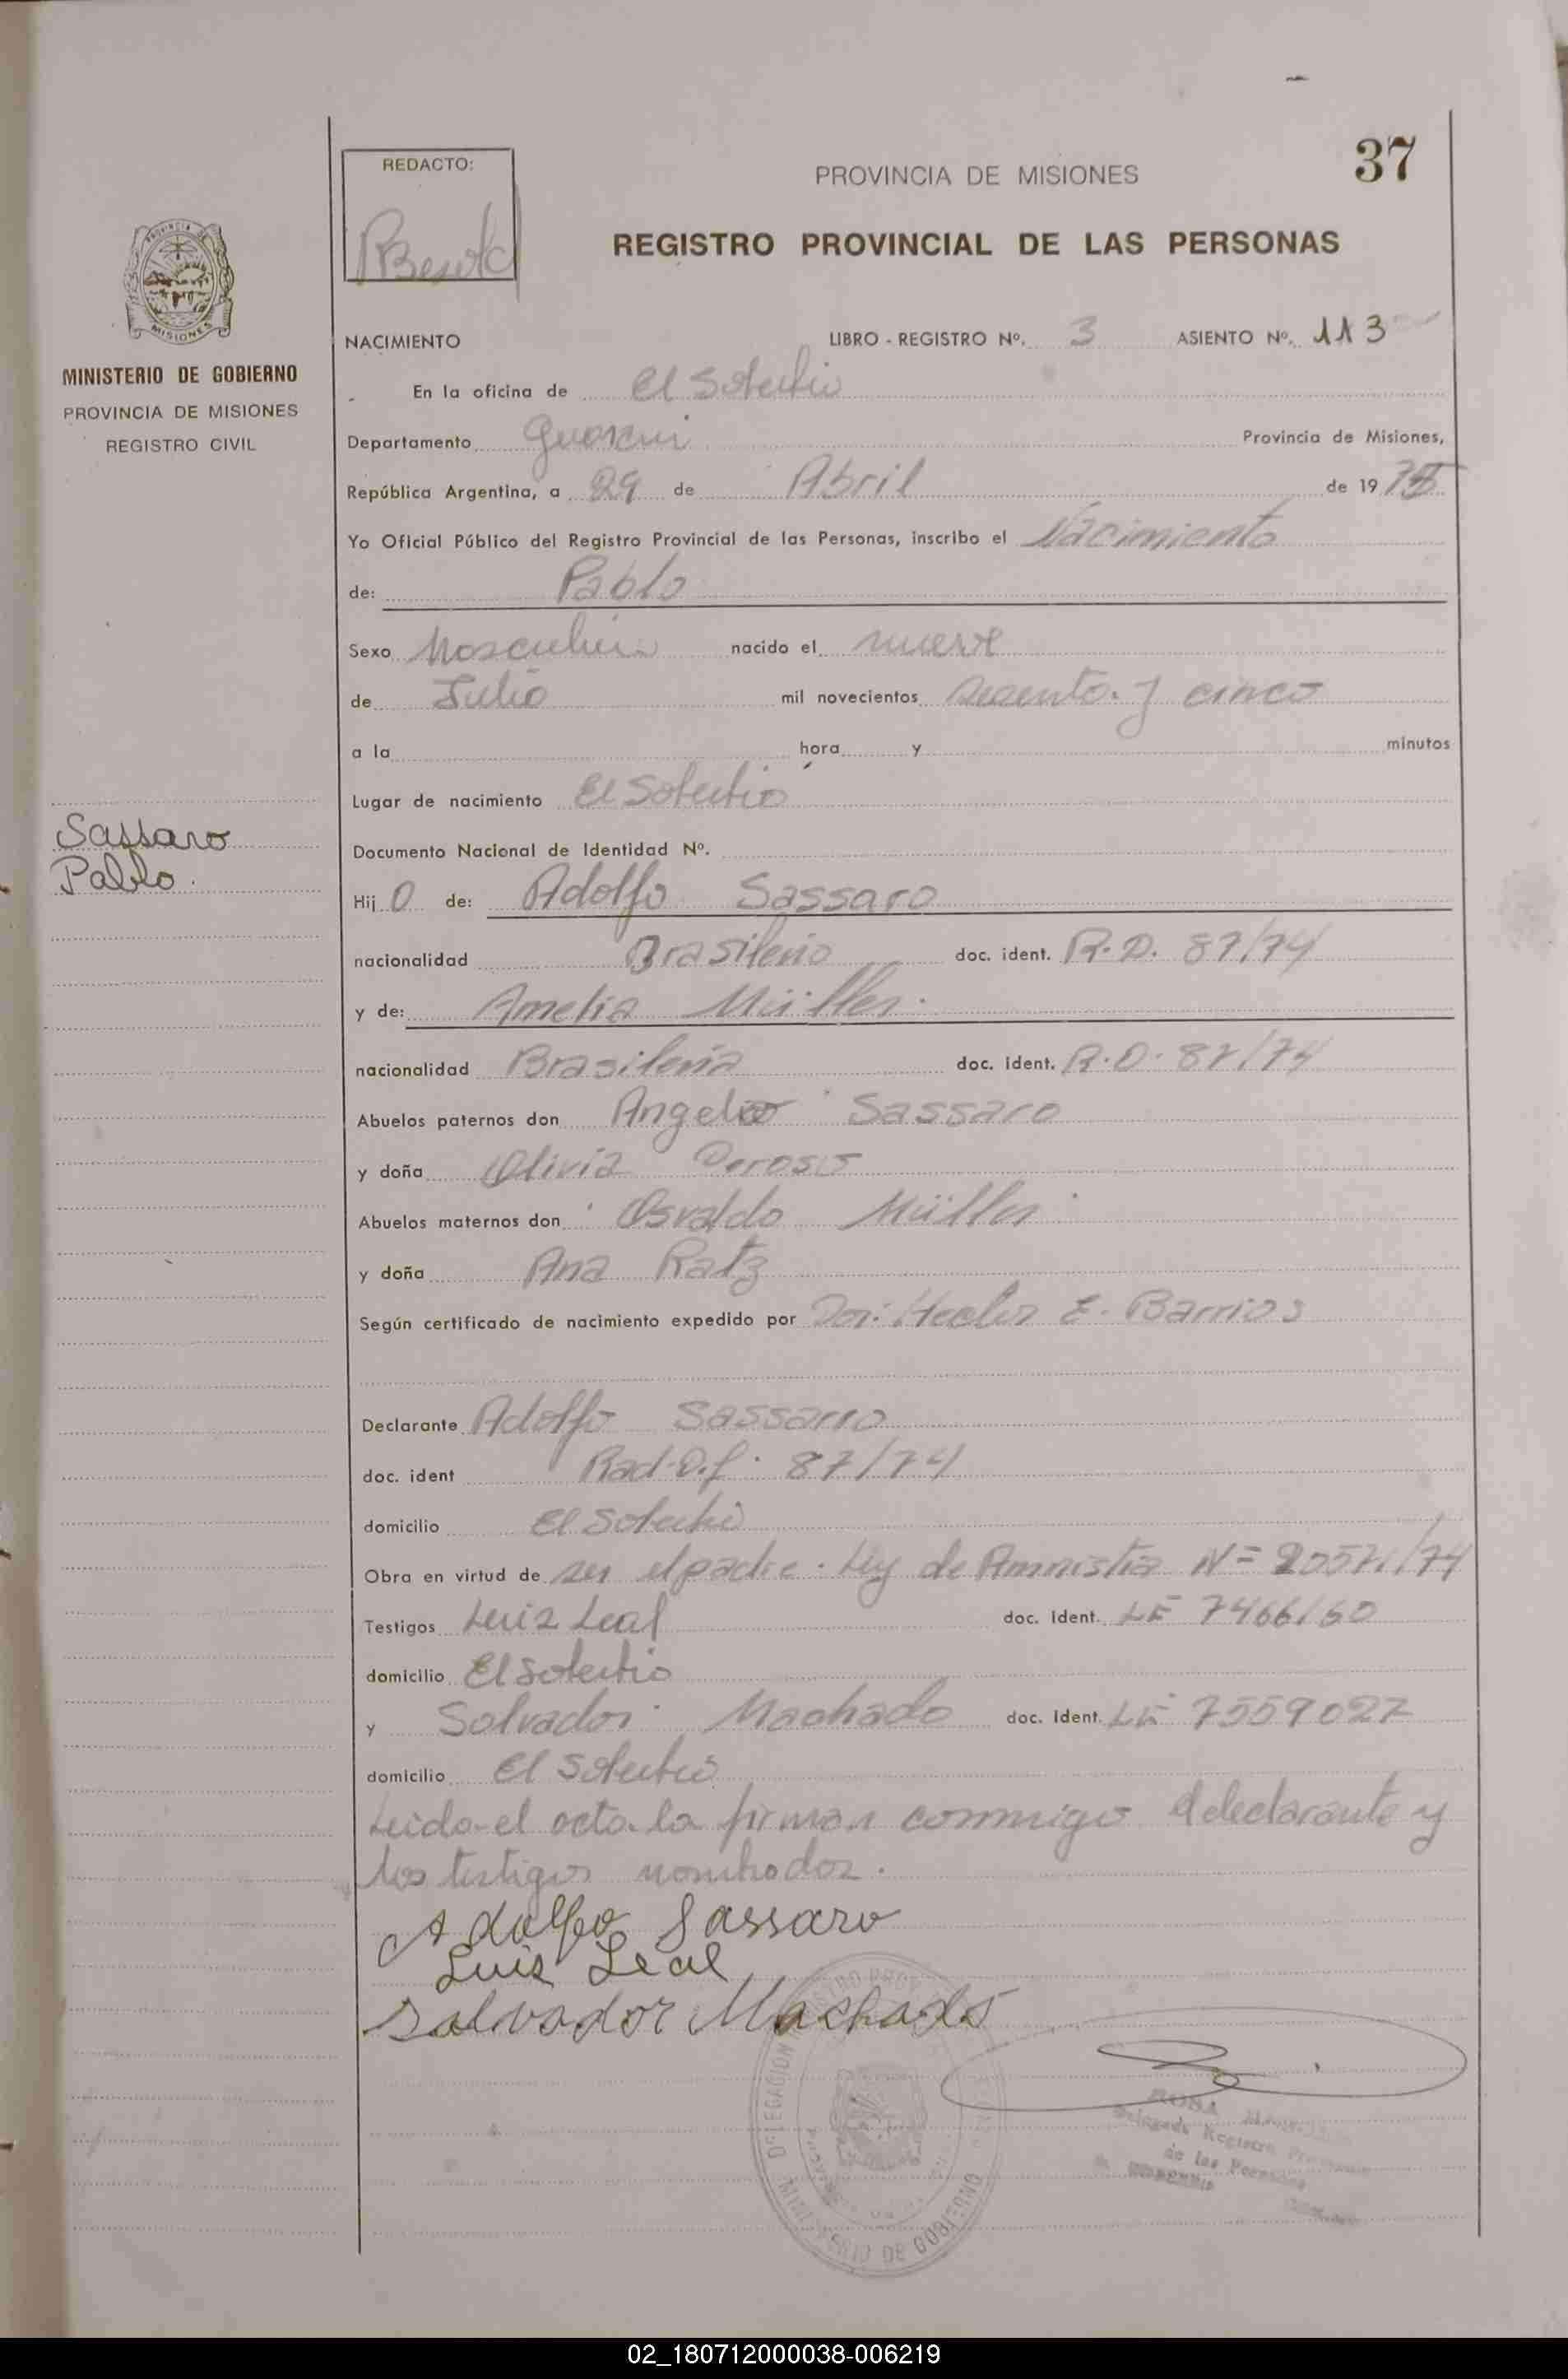 37
REDACTO:
PROVINCIA DE MISIONES
REGISTRO PROVINCIAL DE LAS PERSONAS
PROVINCIA DE
MISIONES
MINISTERIO DE GOBIERNO
PROVINCIA DE MISIONES
REGISTRO CIVIL
NACIMIENTO LIBRO - REGISTRO Nº. 3 ASIENTO Nº. 113
En la oficina de El Soberbio
Departamento Guarani Provincia de Misiones,
República Argentina, a 29 de Abril de 19 75
Yo Oficial Público del Registro Provincial de las Personas, inscribo el Nacimiento
de: Pablo
Sexo Masculino nacido el nueve
de Julio mil novecientos sesenta y cinco
a la hora y minutos
Lugar de nacimiento El Soberbio
Sassaro
Pablo.
Documento Nacional de Identidad Nº.
Hij o de: Adolfo Sassaro
nacionalidad Brasileño doc. ident. R.D. 87/74
y de: Amelia Müller.
nacionalidad Brasileña doc. ident. R.D. 87/74
Abuelos paternos don Angelo Sassaro
y doña Olivia
Abuelos maternos don Osvaldo Müller
y doña Ana Ratz
Según certificado de nacimiento expedido por Dr. Hector E. Barrios
Declarante Adolfo Sassaro
doc. ident Rad.D.f. 87/74
domicilio El Soberbio
Obra en virtud de ser el padre. Ley de Amnistia N= /74
Testigos Luiz Leal doc. ident. LE 7466160
domicilio El Soberbio
y Salvador Machado doc. ident. LE 7559027
domicilio El Soberbio
Leida el acta la firman conmigo el declarante y
los testigos nombrados.
Adolfo Sassaro
Luiz Leal
Salvador Machado
DELEGACION
MINISTERIO DE GOBIERNO
ROSA
Delegada Registro
de las Personas
02_180712000038-006219